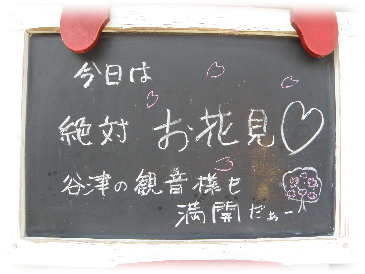 今日は
絶対 お花見♡
谷津の観音様も
満開だぁー